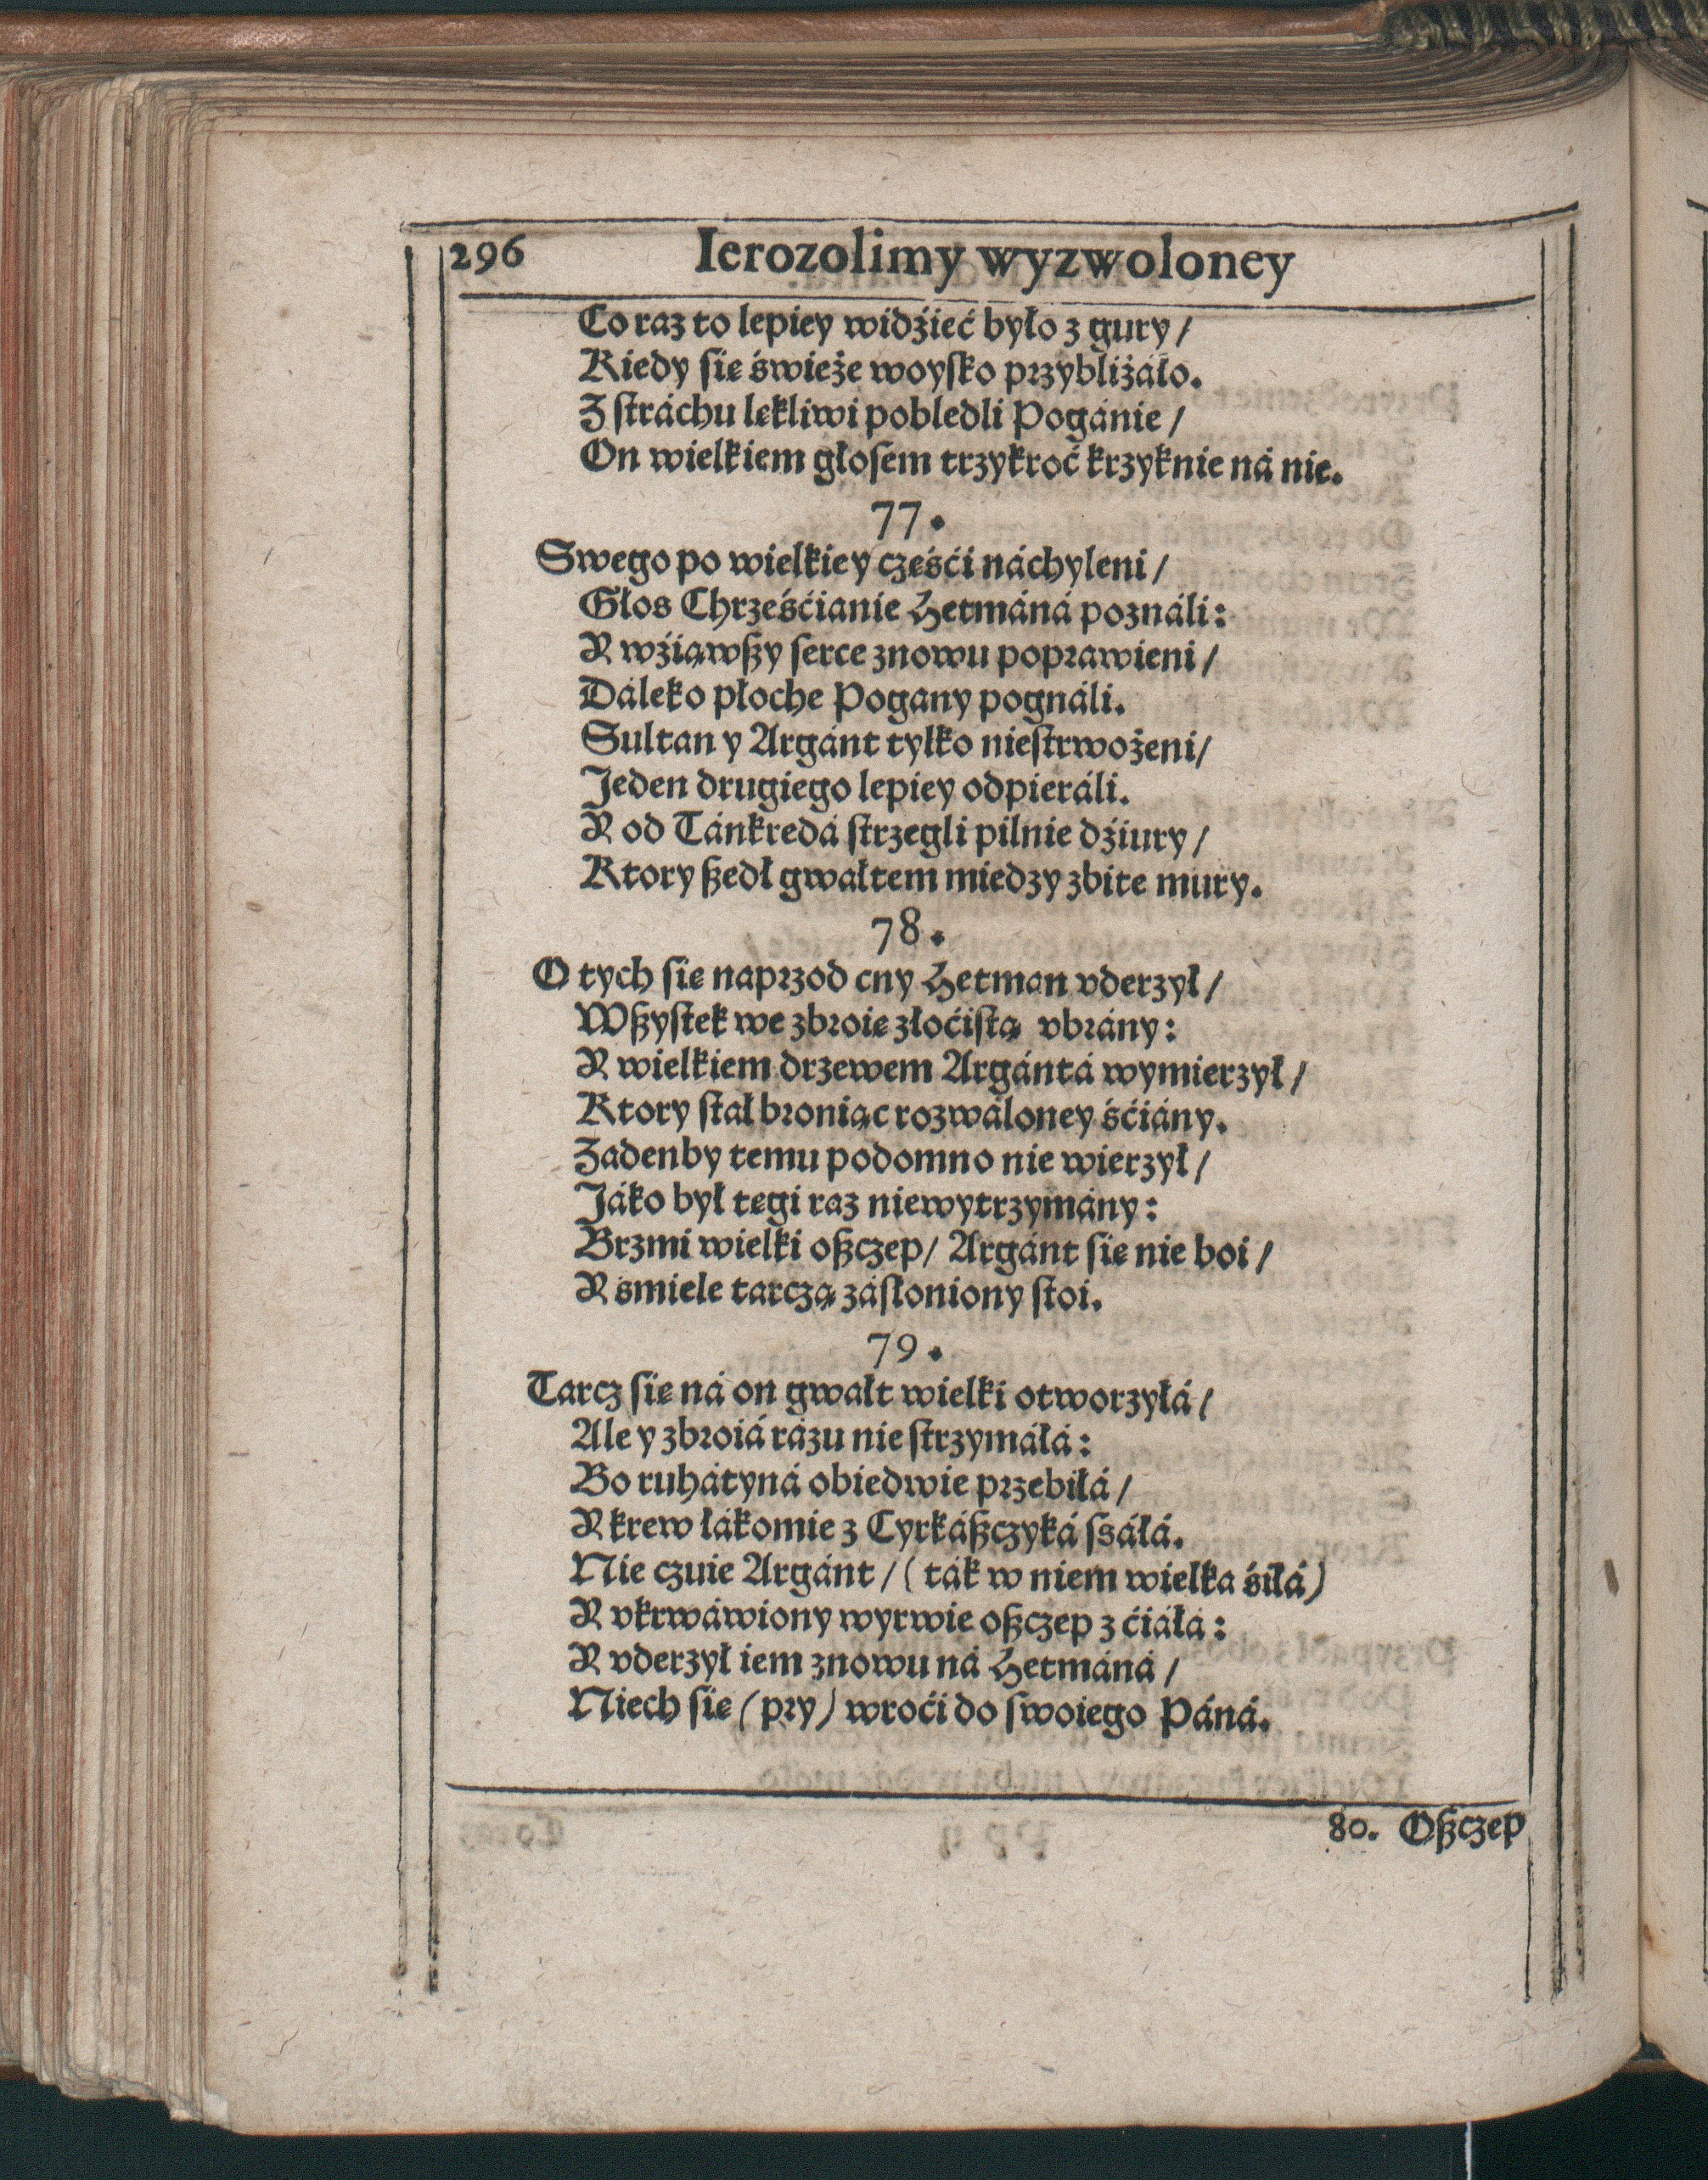 296 Ierozolimy wyzwoloney
Co raz to lepiey widźieć było z gury /
Kiedy się świeże woysko przybliżáło.
Z stráchu lękliwi pobledli Pogánie /
On wielkiem głosem trzykroć krzyknie ná nie.
77.
Swego po wielkiey częśći náchyleni /
Głos Chrześćianie Hetmáná poználi:
Y wźiąwszy serce znowu poprawieni /
Dáleko płoche Pogany pognáli.
Sultan y Argánt tylko niestrwożeni /
Jeden drugiego lepiey odpieráli.
Y od Tánkredá strzegli pilnie dźiury /
Ktory szedł gwałtem miedzy zbite mury.
78.
O tych się naprzod cny Hetman vderzył /
Wszystek we zbroię złoćistą vbrány:
Y wielkiem drzewem Argántá wymierzył /
Ktory stał broniąc rozwáloney śćiány.
Zadenby temu podomno nie wierzył /
Jáko był tęgi raz niewytrzymány:
Brzmi wielki oszczep / Argánt się nie boi /
Y śmiele tarczą zásłoniony stoi.
79.
Tarcz się ná on gwałt wielki otworzyłá /
Ale y zbroiá rázu nie strzymáłá:
Bo ruhátyná obiedwie przebiłá /
Y krew łákomie z Cyrkászczyká ssáłá.
Nie czuie Argánt / (ták w niem wielka śiłá)
Y vkrwáwiony wyrwie oszczep z ćiáłá:
Y vderzył iem znowu ná Hetmáná /
Niech się (pry) wroći do swoiego Páná.
80. Oszczep